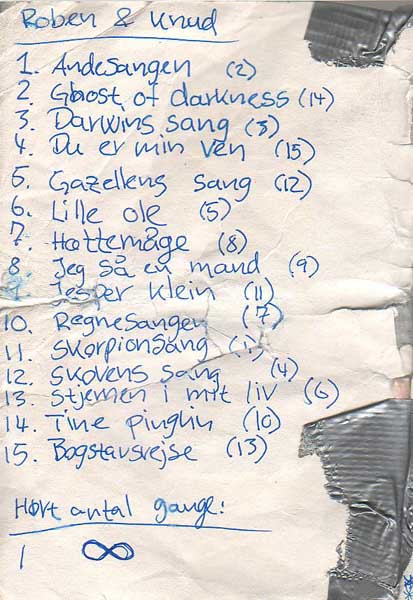 Roben & Knud
1. Andesangen (2)
2. Ghost of darkness (14)
3. Darwins sang (3)
4. Du er min ven (15)
5. Gazellens sang (12)
6. Lille ole (5)
7. Hættemåge (8)
8. Jeg så en mand (9)
9. Jesper Klein (11)
10. Regnesangen (7)
11. Skorpionsang (1)
12. Skovens sang (4)
13. Stjernen i mit liv (6)
14. Tine pingvin (10)
15. Bogstavsrejse (13)
Hørt antal gange:
1 ∞